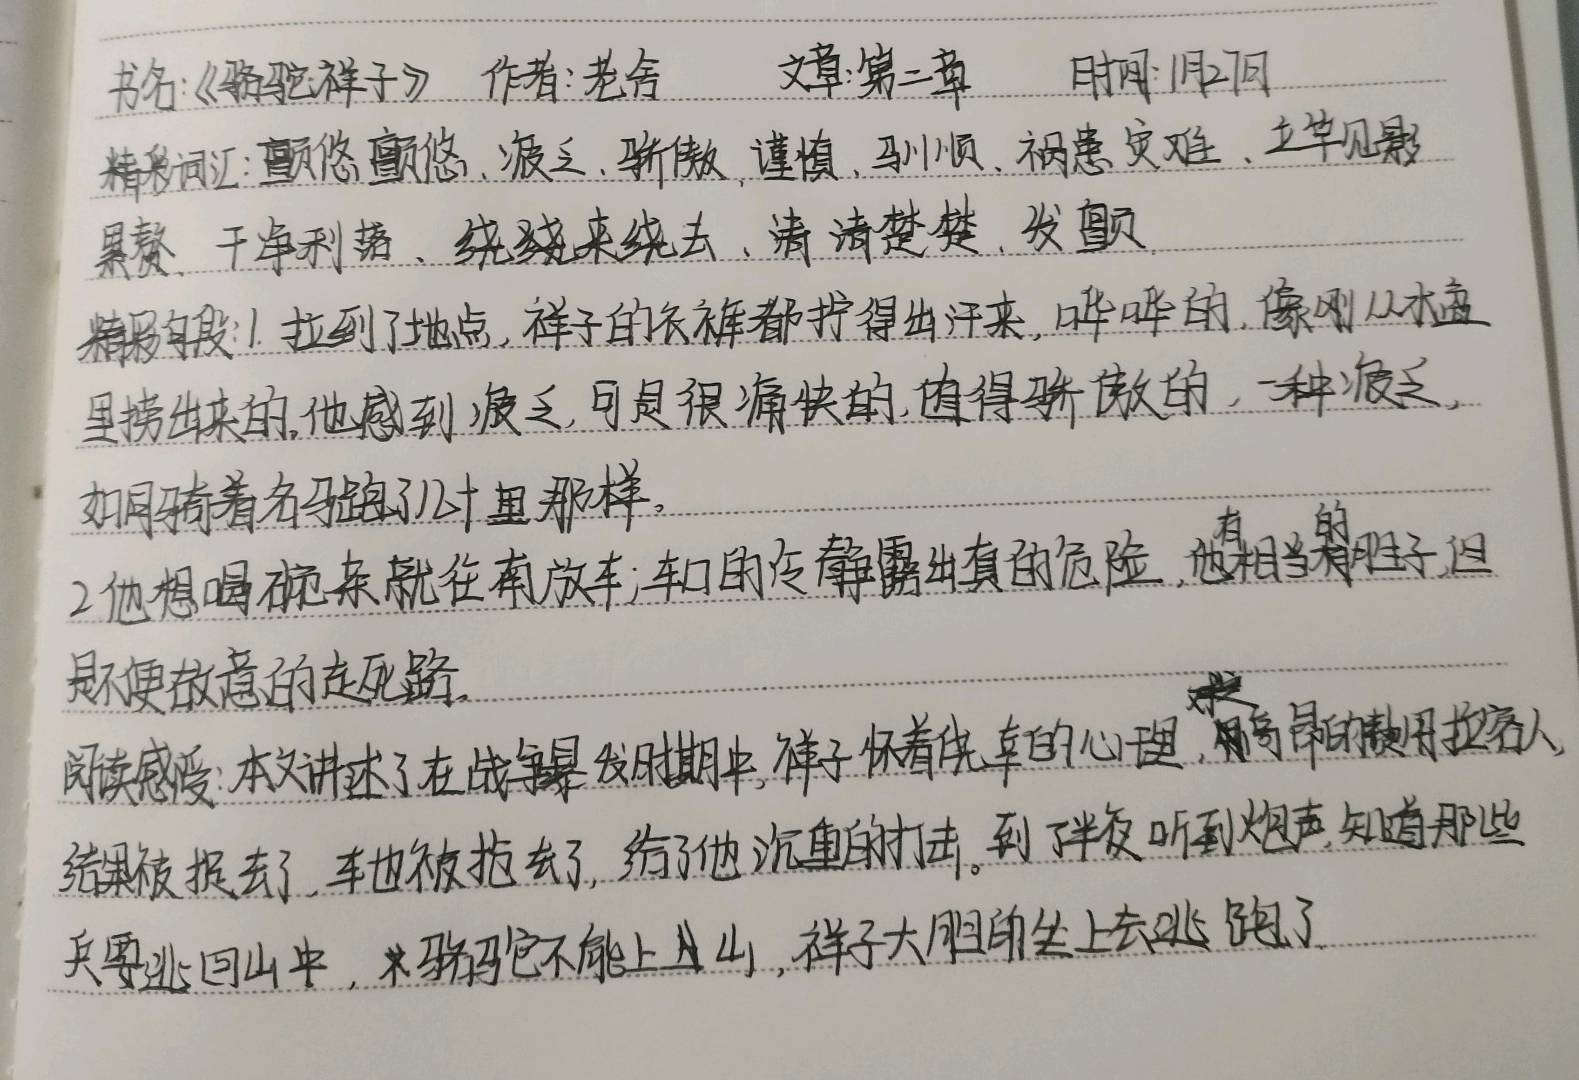 书名:《骆驼祥子》 作者:老舍 文章:第二章 时间:1月27日
精彩词汇:颤悠颤悠、疲乏、骄傲、谨慎、驯顺、祸患灾难、立竿见影
累赘、干净利落、绕绕来绕去、清清楚楚、发颤
精彩句段:1.拉到了地点,祥子的衣裤都拧得出汗来,哗哗的,像刚从水盆
里捞出来的。他感到疲乏,可是很痛快的,值得骄傲的,一种疲乏,
如同骑着名马跑了几十里那样。
2他想喝碗茶就往南放车;车口的冷静露出真的危险,他有相当的胆子,但
是不便故意的走死路。
阅读感受:本文讲述了在战争暴发时期中,祥子怀着侥幸的心理,高昂的费用拉客人,
结果被捉去了,车也被抢去了,给了他沉重的打击。到了半夜听到炮声,知道那些
兵要逃回山中,骆驼不能上山,祥子大胆的坐上去逃跑了